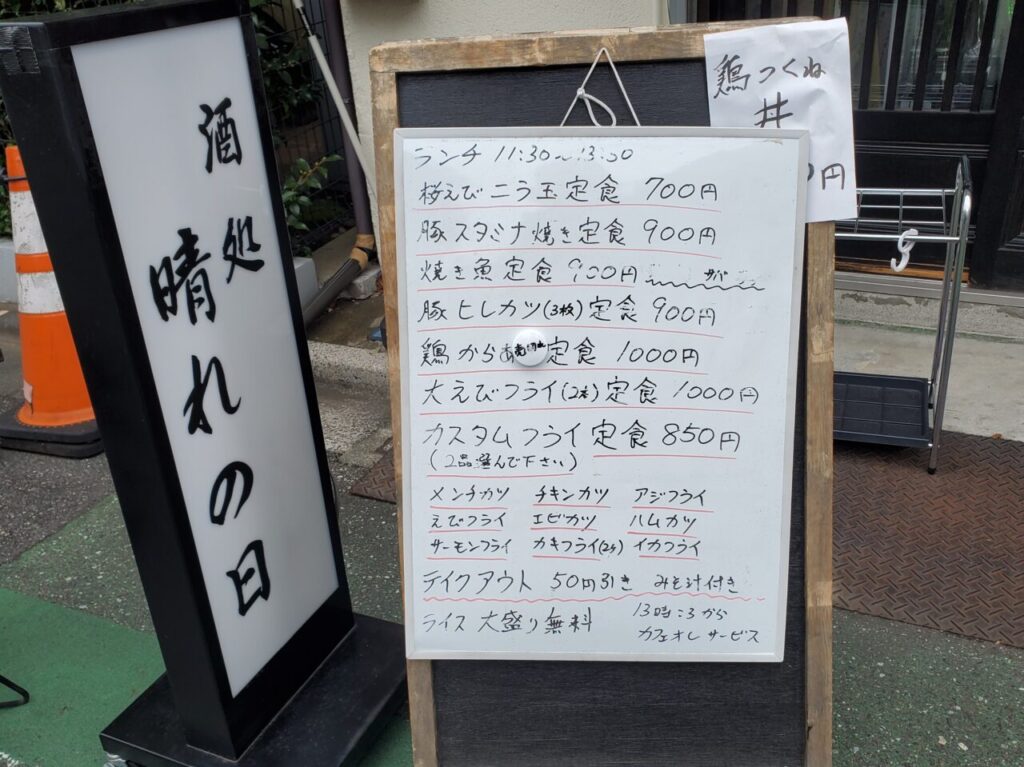 酒処
晴れの日
鶏つくね
丼
円
ランチ 11:30~13:30
桜えびニラ玉定食 700円
豚スタミナ焼き定食 900円
焼き魚定食 900円 サバ
豚ヒレカツ(3枚)定食 900円
鶏から 定食 1000円
大えびフライ(2本)定食 1000円
カスタムフライ定食 850円
(2品選んで下さい)
メンチカツ チキンカツ アジフライ
えびフライ エビカツ ハムカツ
サーモンフライ カキフライ(2ケ) イカフライ
テイクアウト 50円引き みそ汁付き
ライス大盛り無料
13時ころから
カフェオレサービス